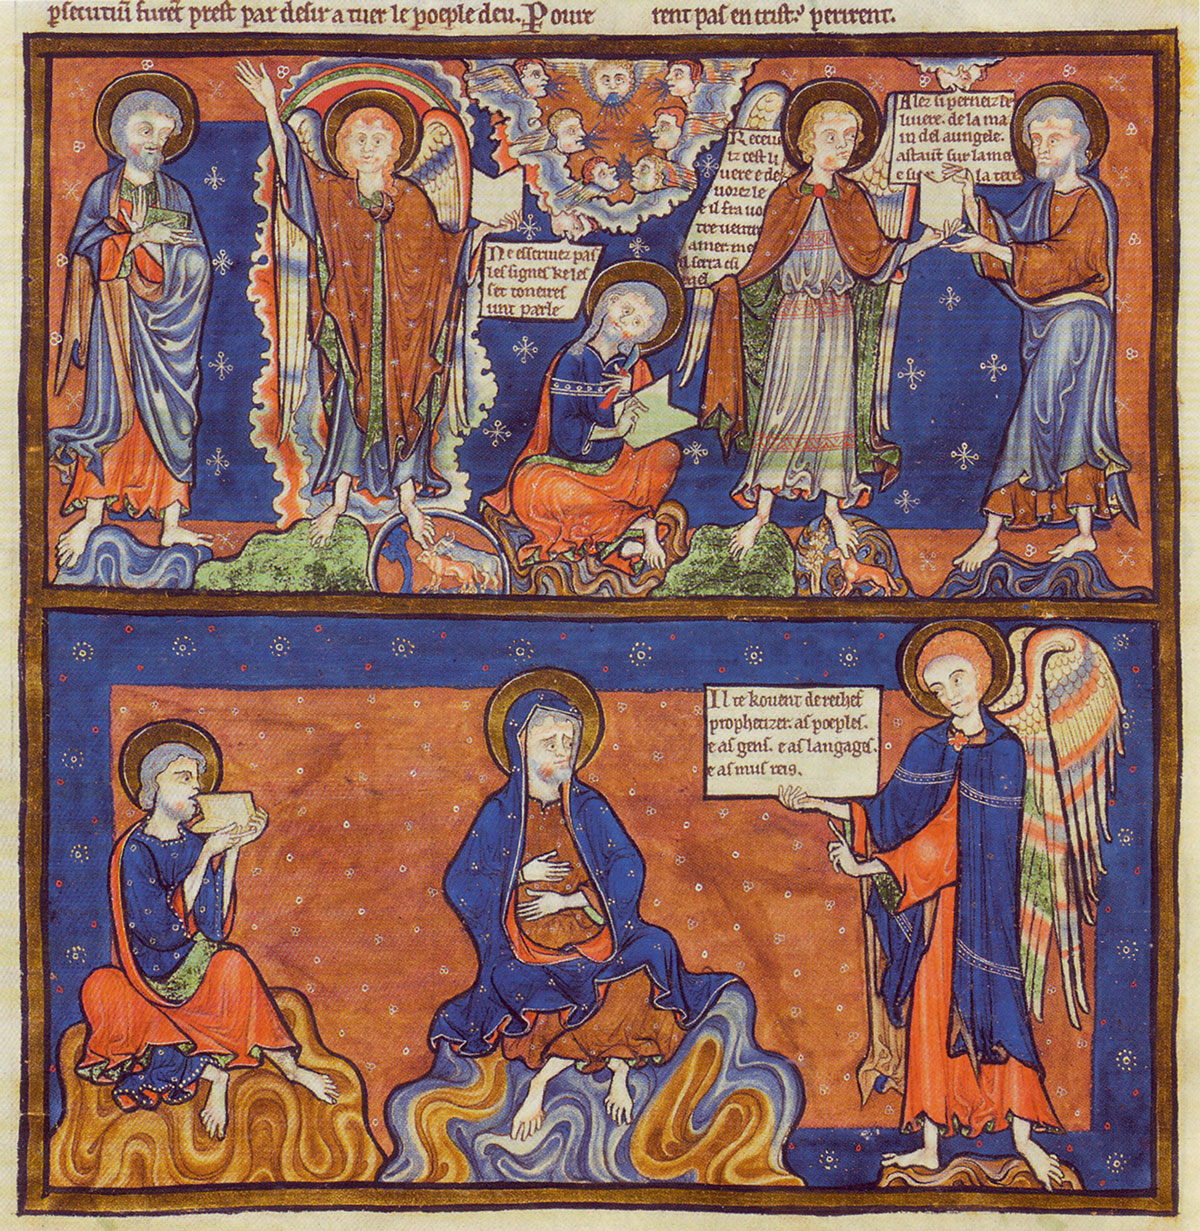 psecutiũ furẽt prest par desir a tuer le poeple deu. Poure rent pas en trist.' perirent.
Ne escriuez pas
les signes ke les
set toneires
unt parle
Receue
iz cest li
uere e de
uorez le
e il fra uo
tre uentre
amer me
il serra
Alez si perneiz le
liuere. de la ma
in del aungele.
astaũt sur la mer
e sur la tere
Il te kouent derechef
prophetizer. as poeples.
e as gens. e as langages.
e as mus reis.